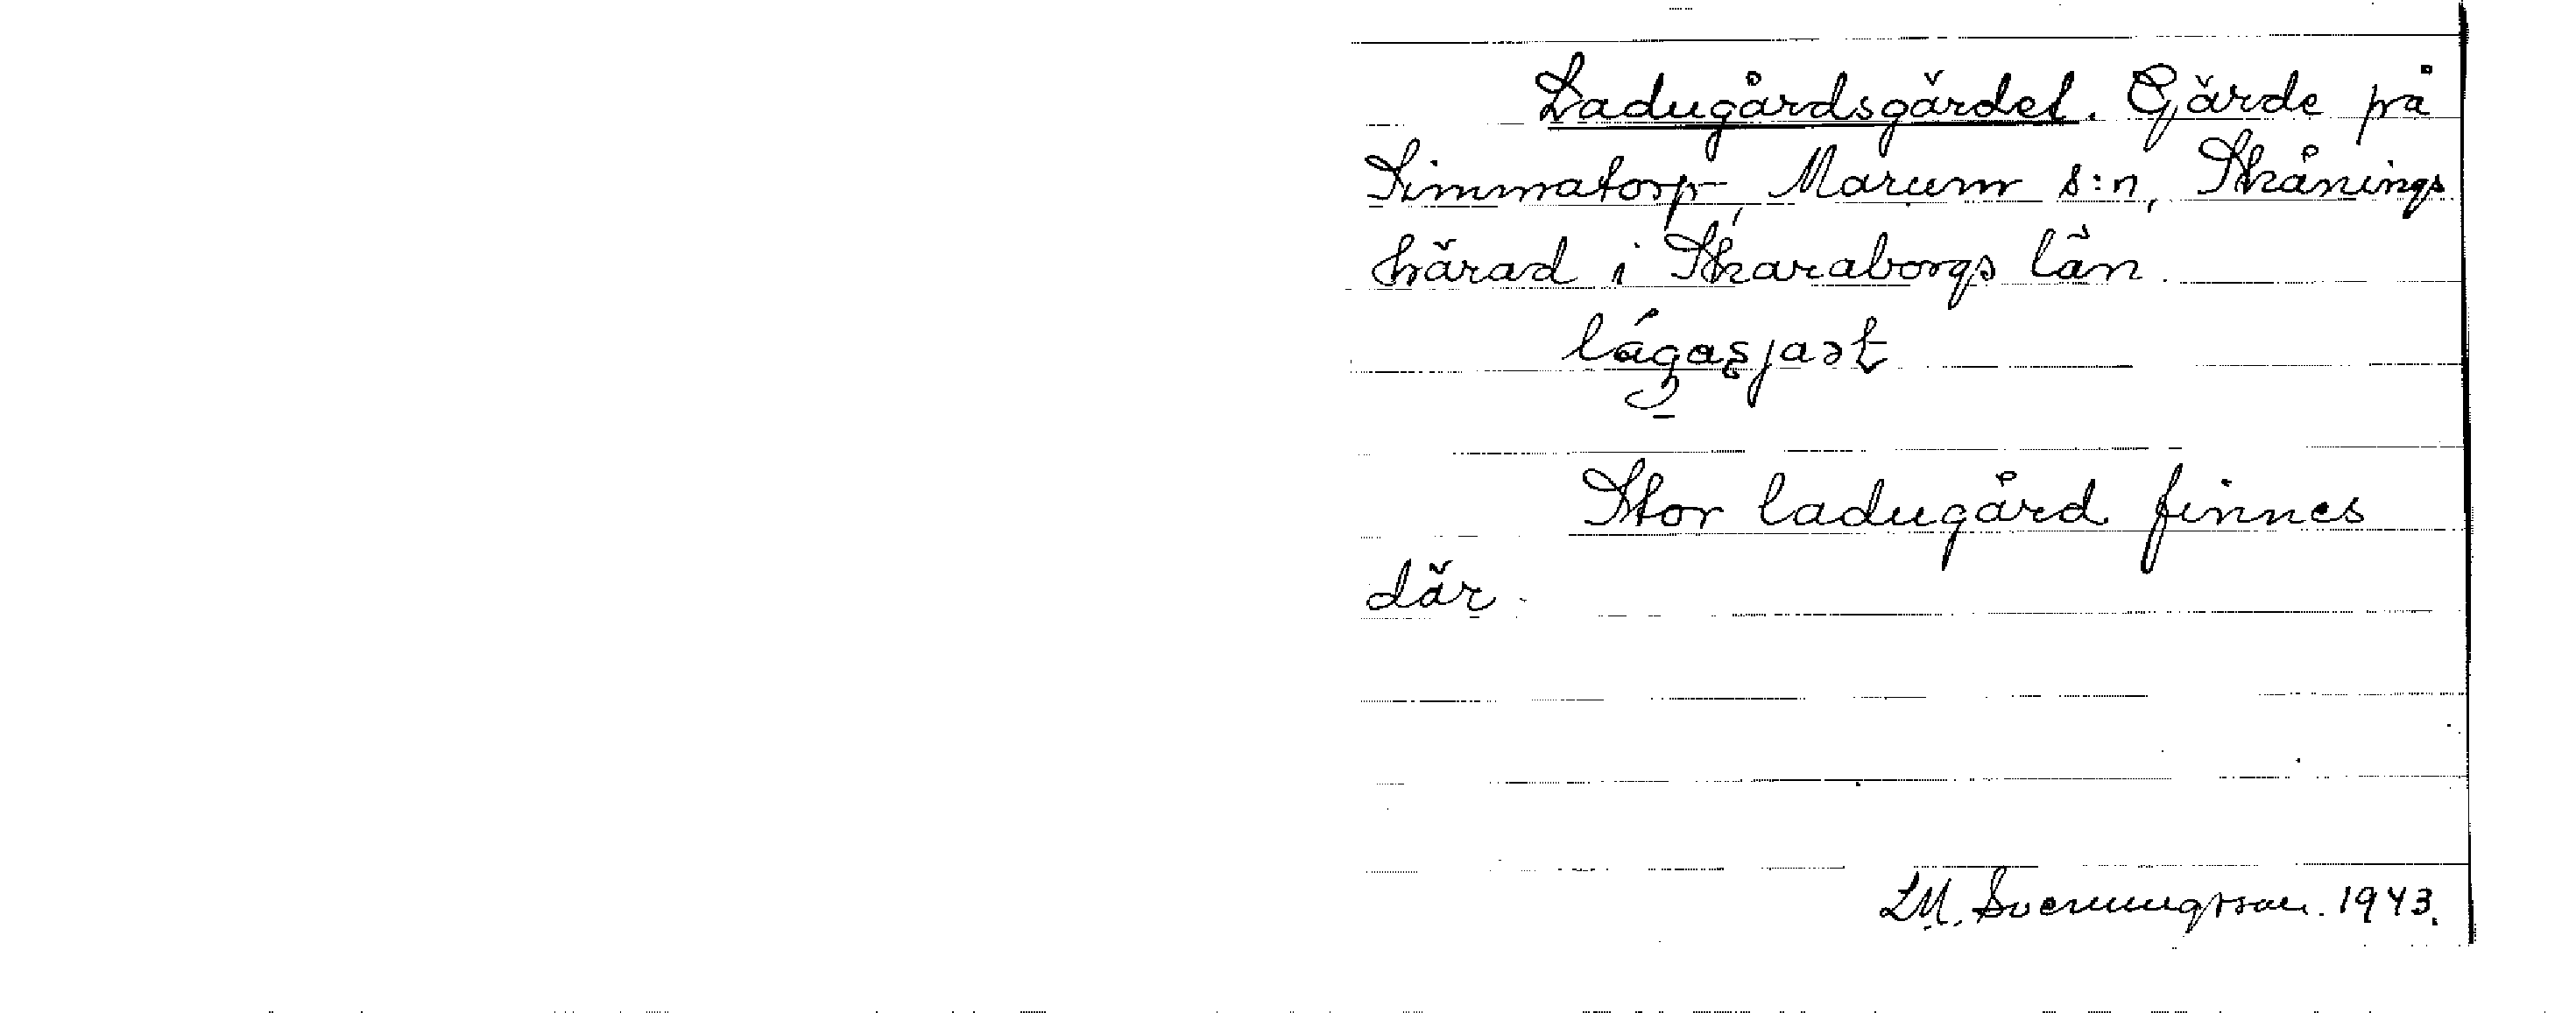 Ladugårdsgärdet. Gjärde på
Simmatorp Marum s:n, Skånings
härad i Skaraborgs län.
Stor ladugård finnes
där.
L.M. Svenungsson. 1943.